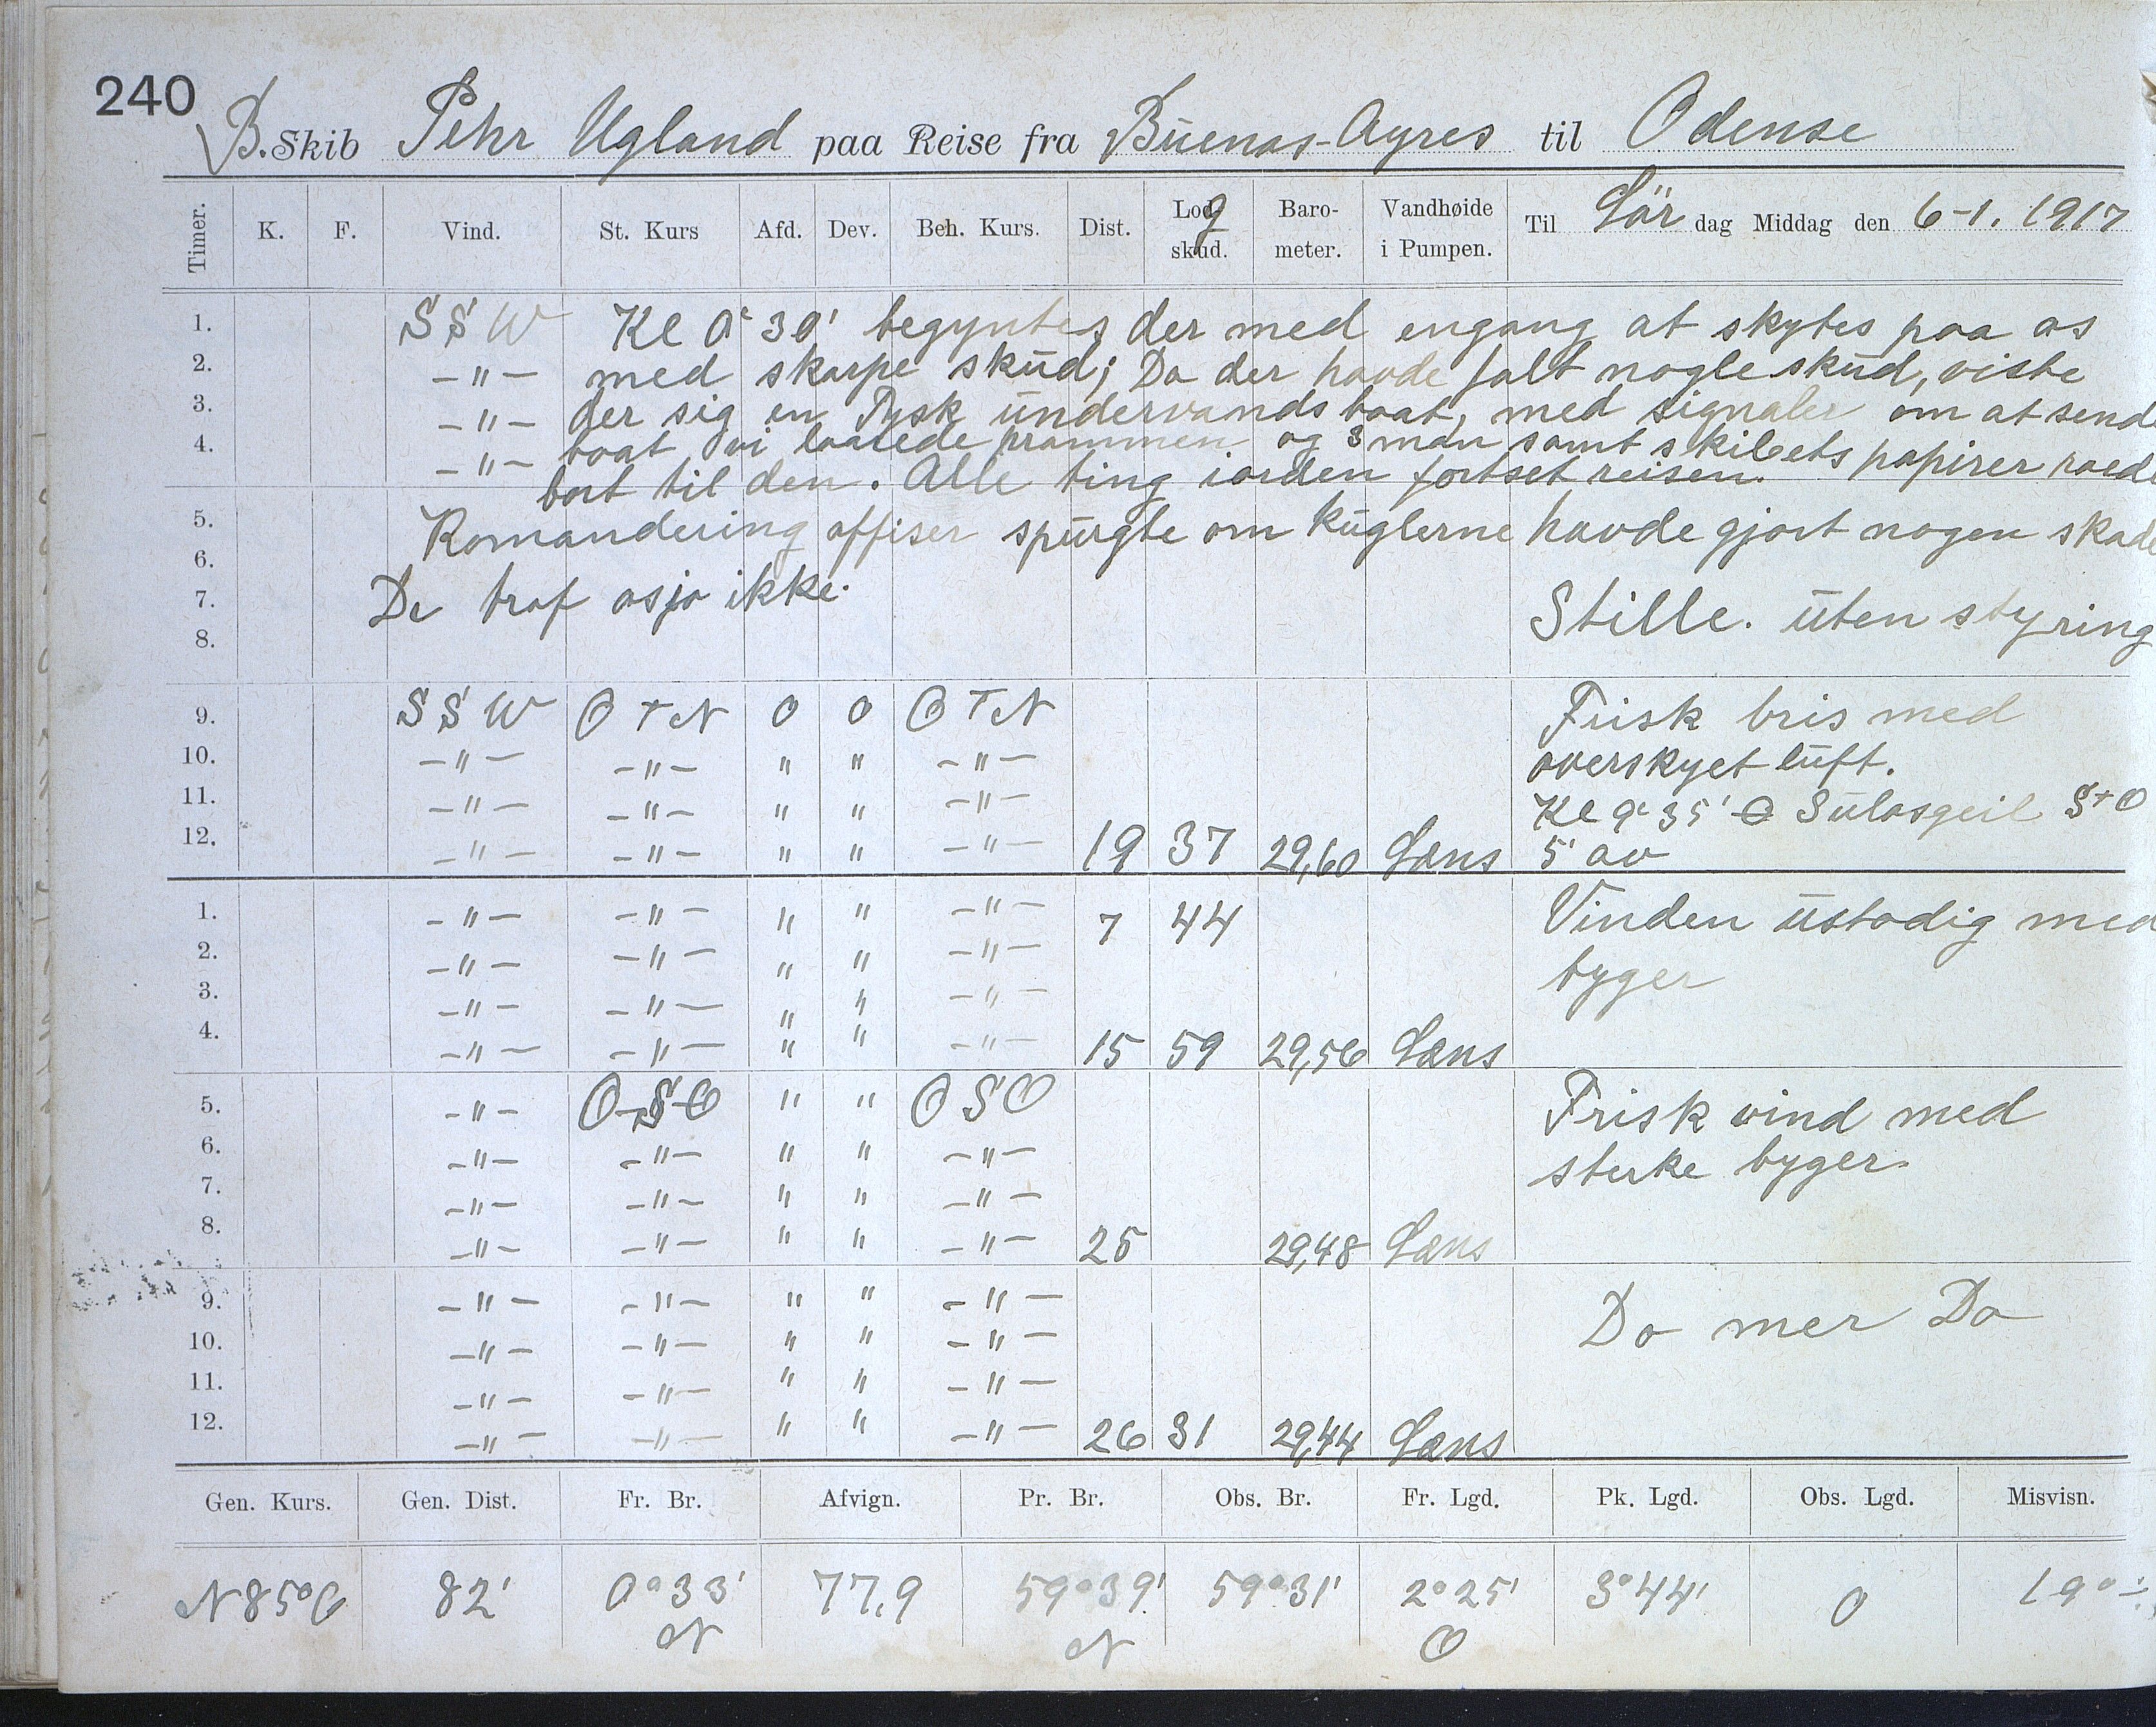 240
B. Skib Pehr Ugland paa Reise fra Buenas-Ayres til Odense
Timer. K. F. Vind. St. Kurs Afd. Dev. Beh. Kurs. Dist. Logskud. Barometer. Vandhøide i Pumpen. Til Lördag Middag den 6-1. 1917
1. SSW Kl 0' 30' begyntes der med engang at skytes paa os
2. -"- med skarpe skud; Da der havde falt nogle skud, viste
3. -"- der sig en Tysk undervandsbaat, med signaler om at sende
4. -"- baat vi laarede prammen og 3 man samt skibets papirer roede
bort til den. Alle ting iorden fortset reisen.
5. Komandering offiser spurgte om kuglerne havde gjort nogen skade
6.
7. De traf os jo ikke. Stille. uten styring
8.
9. SSW OTN 0 0 OTN Frisk bris med
10. -"- -"- " " -"- overskyet luft.
11. -"- -"- " " -"- Kl 9' 35' Sulasgeil STO
12. -"- -"- " " -"- 19 37 29,60 Læns 5' av
1. -"- -"- " " -"- 7 44 Vinden ustadig med
2. -"- -"- " " -"- byger
3. -"- -"- " " -"-
4. -"- -"- " " -"- 15 59 29,56 Læns
5. -"- OSO " " OSO Frisk vind med
6. -"- -"- " " -"- sterke byger.
7. -"- -"- " " -"-
8. -"- -"- " " -"- 25 29,48 Læns
9. -"- -"- " " -"- Do mer Do
10. -"- -"- " " -"-
11. -"- -"- " " -"-
12. -"- -"- " " -"- 26 31 29,44 Læns
Gen. Kurs. Gen. Dist. Fr. Br. Afvign. Pr. Br. Obs. Br. Fr. Lgd. Pk. Lgd. Obs. Lgd. Misvisn.
N85°O 82' 0°33' N 77,9 59°39' N 59°31' 2°25' O 3°44' 0 19°÷